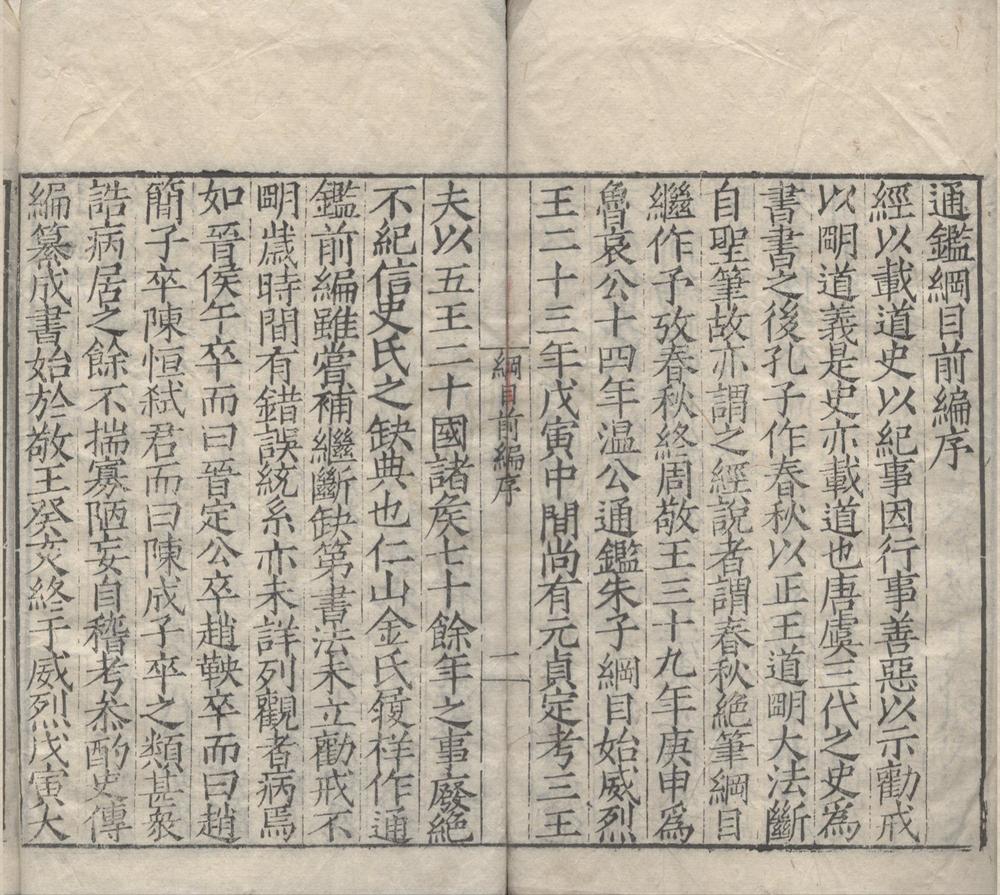 通鑑綱目前編序
經以載道史以紀事因行事善惡以示勸戒
以明道義是史亦載道也唐虞三代之史爲
書書之後孔子作春秋以正王道明大法斷
自聖筆故亦謂之經說者謂春秋絶筆綱目
繼作予攷春秋終周敬王三十九年庚申爲
魯哀公十四年温公通鑑朱子綱目始威烈
王二十三年戊寅中間尚有元貞定考三王
綱目前編序
一
夫以五王二十國諸侯七十餘年之事廢絶
不紀信史氏之缺典也仁山金氏履祥作通
鑑前編雖嘗補繼斷缺第書法未立勸戒不
明歲時間有錯誤統系亦未詳列觀者病焉
如晉侯午卒而曰晉定公卒趙鞅卒而曰趙
簡子卒陳恒弑君而曰陳成子卒之類甚衆
誥病居之餘不揣寡陋妄自稽考叅酌史傳
編纂成書始於敬王癸亥終于威烈戊寅大